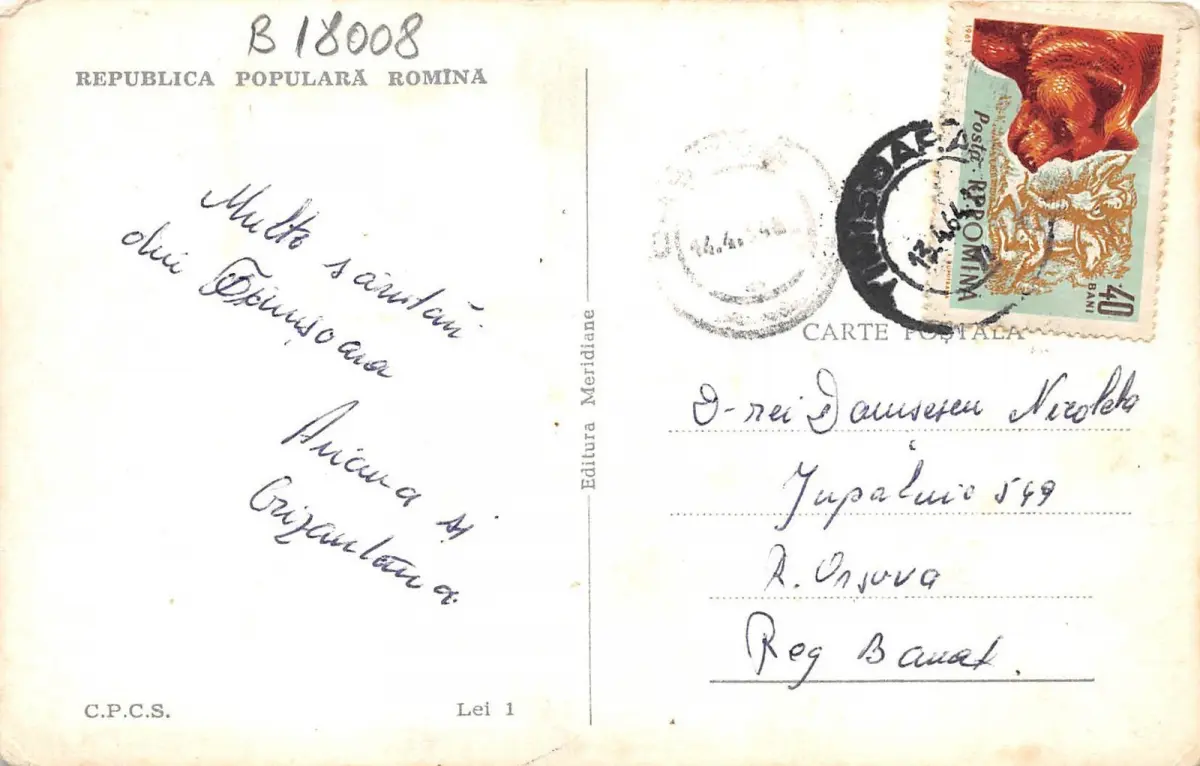 B 18008
REPUBLICA POPULARĂ ROMÎNĂ
Multe sărutări
din Timișoara
Ariana și
Crizantema
C.P.C.S.
Lei 1
Editura Meridiane
1961
Posta R.P.ROMINA
40
BANI
TIMIȘOARA
13.4.64
14.4.
CARTE POȘTALĂ
D-rei Danisescu Nicoleta
Jupalnic 549
R. Orșova
Reg Banat.